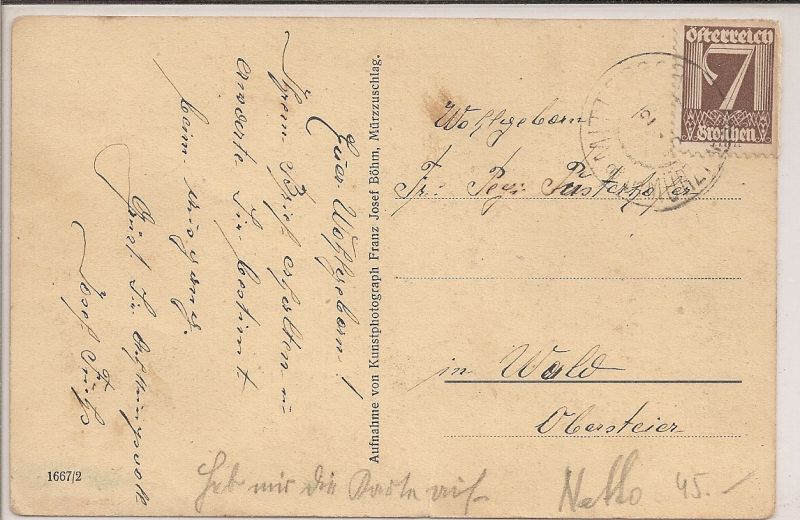 Euer Wohlgeborn!
Ihren Brief erhalten u
erwarte Sie bestimt
beim
Grüst Sie
Josef Fuchs
Aufnahme von Kunstphotograph Franz Josef Böhm, Mürzzuschlag.
1667/2
Österreich
7
Groschen
Wohlgeborn
Fr: Pepi Pusterhofer
in Wald
Obersteier
heb mir die Karte auf
Netto 45.-